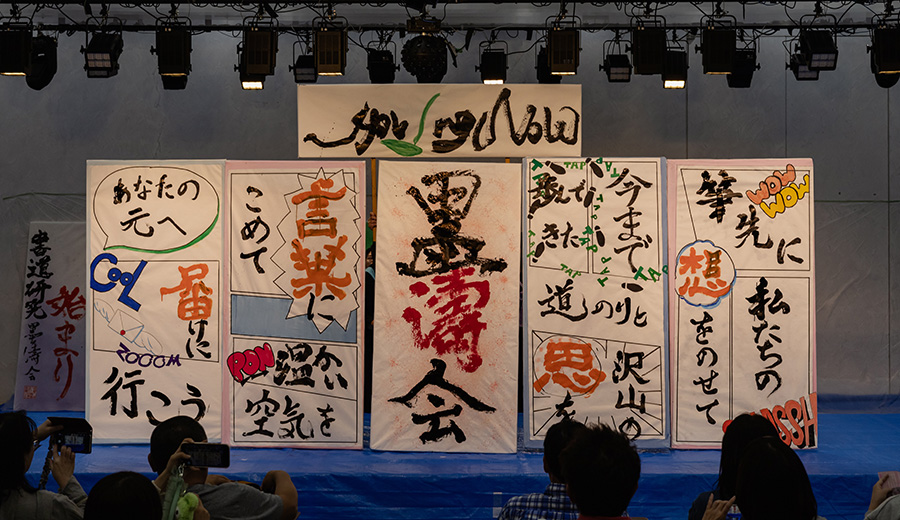 Now
筆先に
WOW
WOW
私たちの
想
をのせて
今まで
歩んで
きた
TAP
TAP
TAP
道のりと
沢山の
思
を
墨
濤
会
言葉に
こめて
PON
温かい
空気を
あなたの
元へ
COOL
届けに
ZOOOM
行こう
書道研究 墨濤会